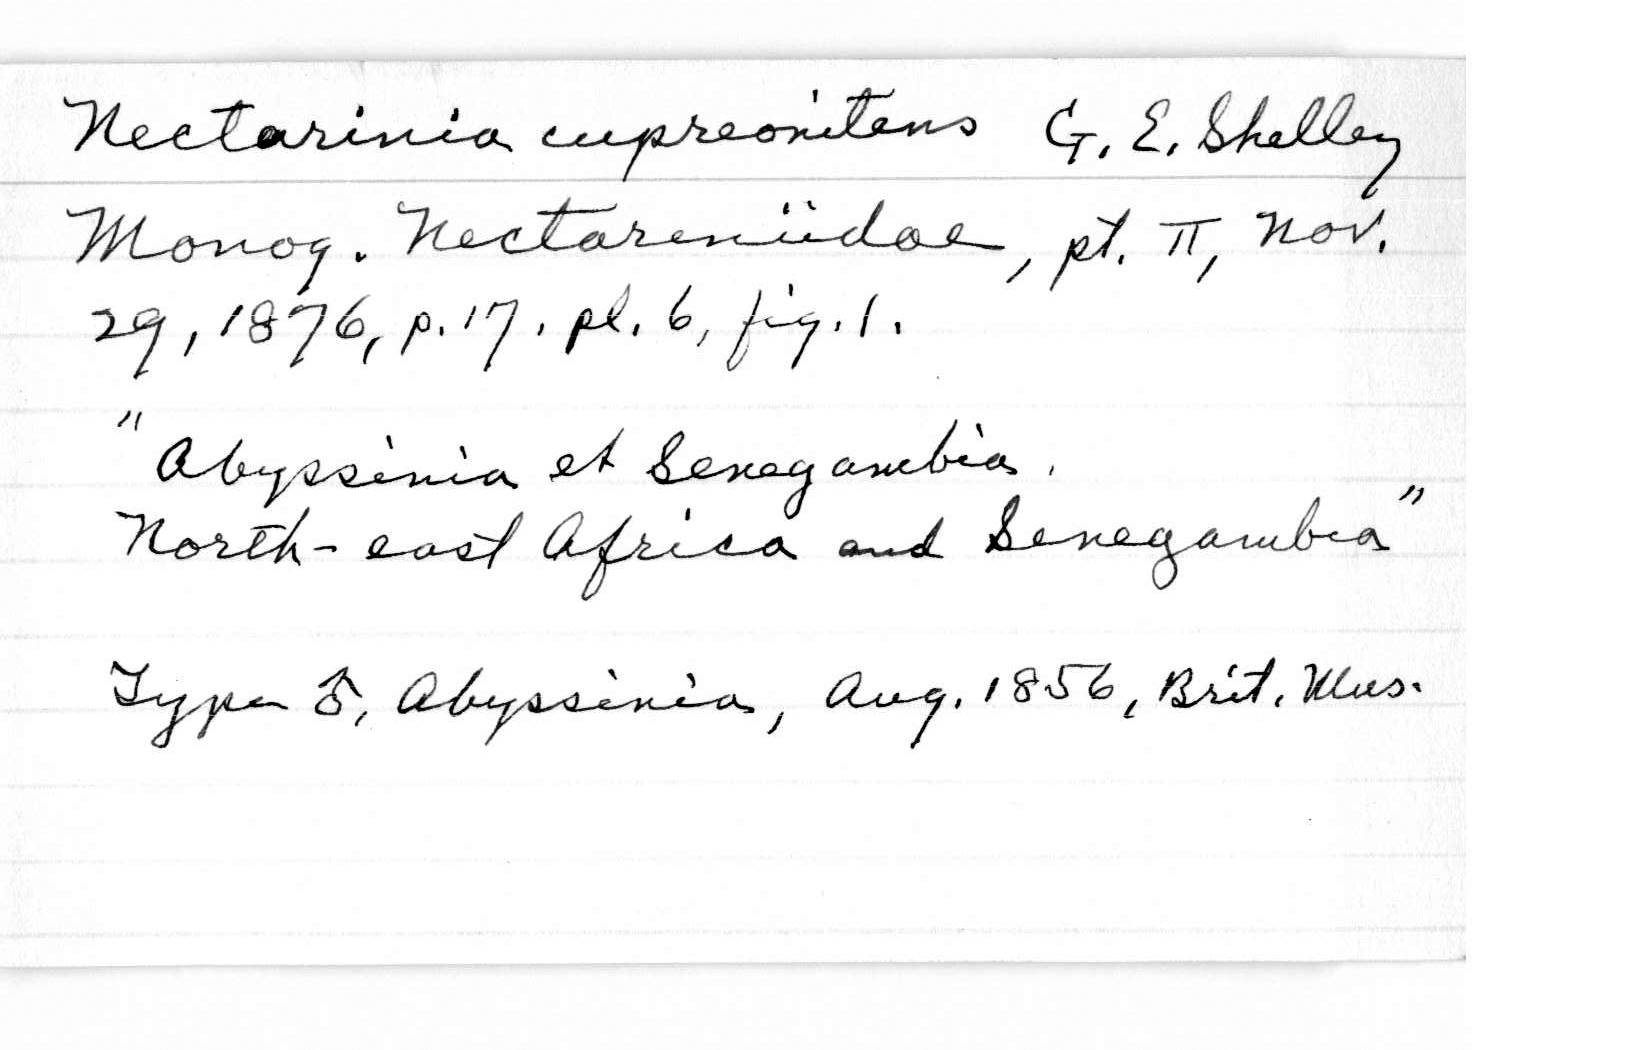 Nectarinia cupreonitens G. E. Shelley
Monog. Nectareniidae, pt. II, Nov.
29, 1876, p. 17. pl. 6, fig. 1.
"Abyssinia et Senegambia.
North-east Africa and Senegambia"
Type ♂, Abyssinia, Aug. 1856, Brit. Mus.